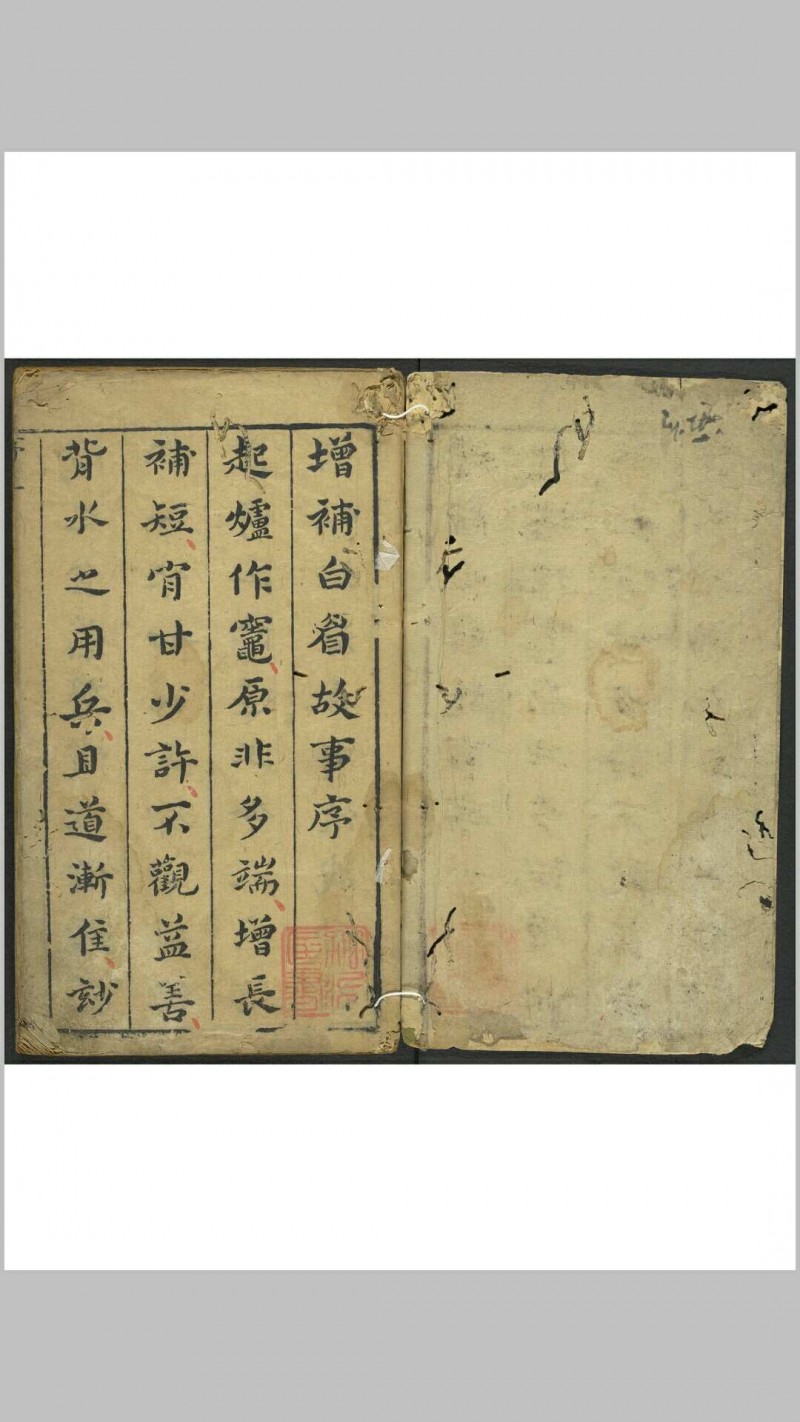 增補白眉故事序
起爐作竈原非多端增長
補短肎甘少許不觀益善
背水之用兵且道漸佳玅